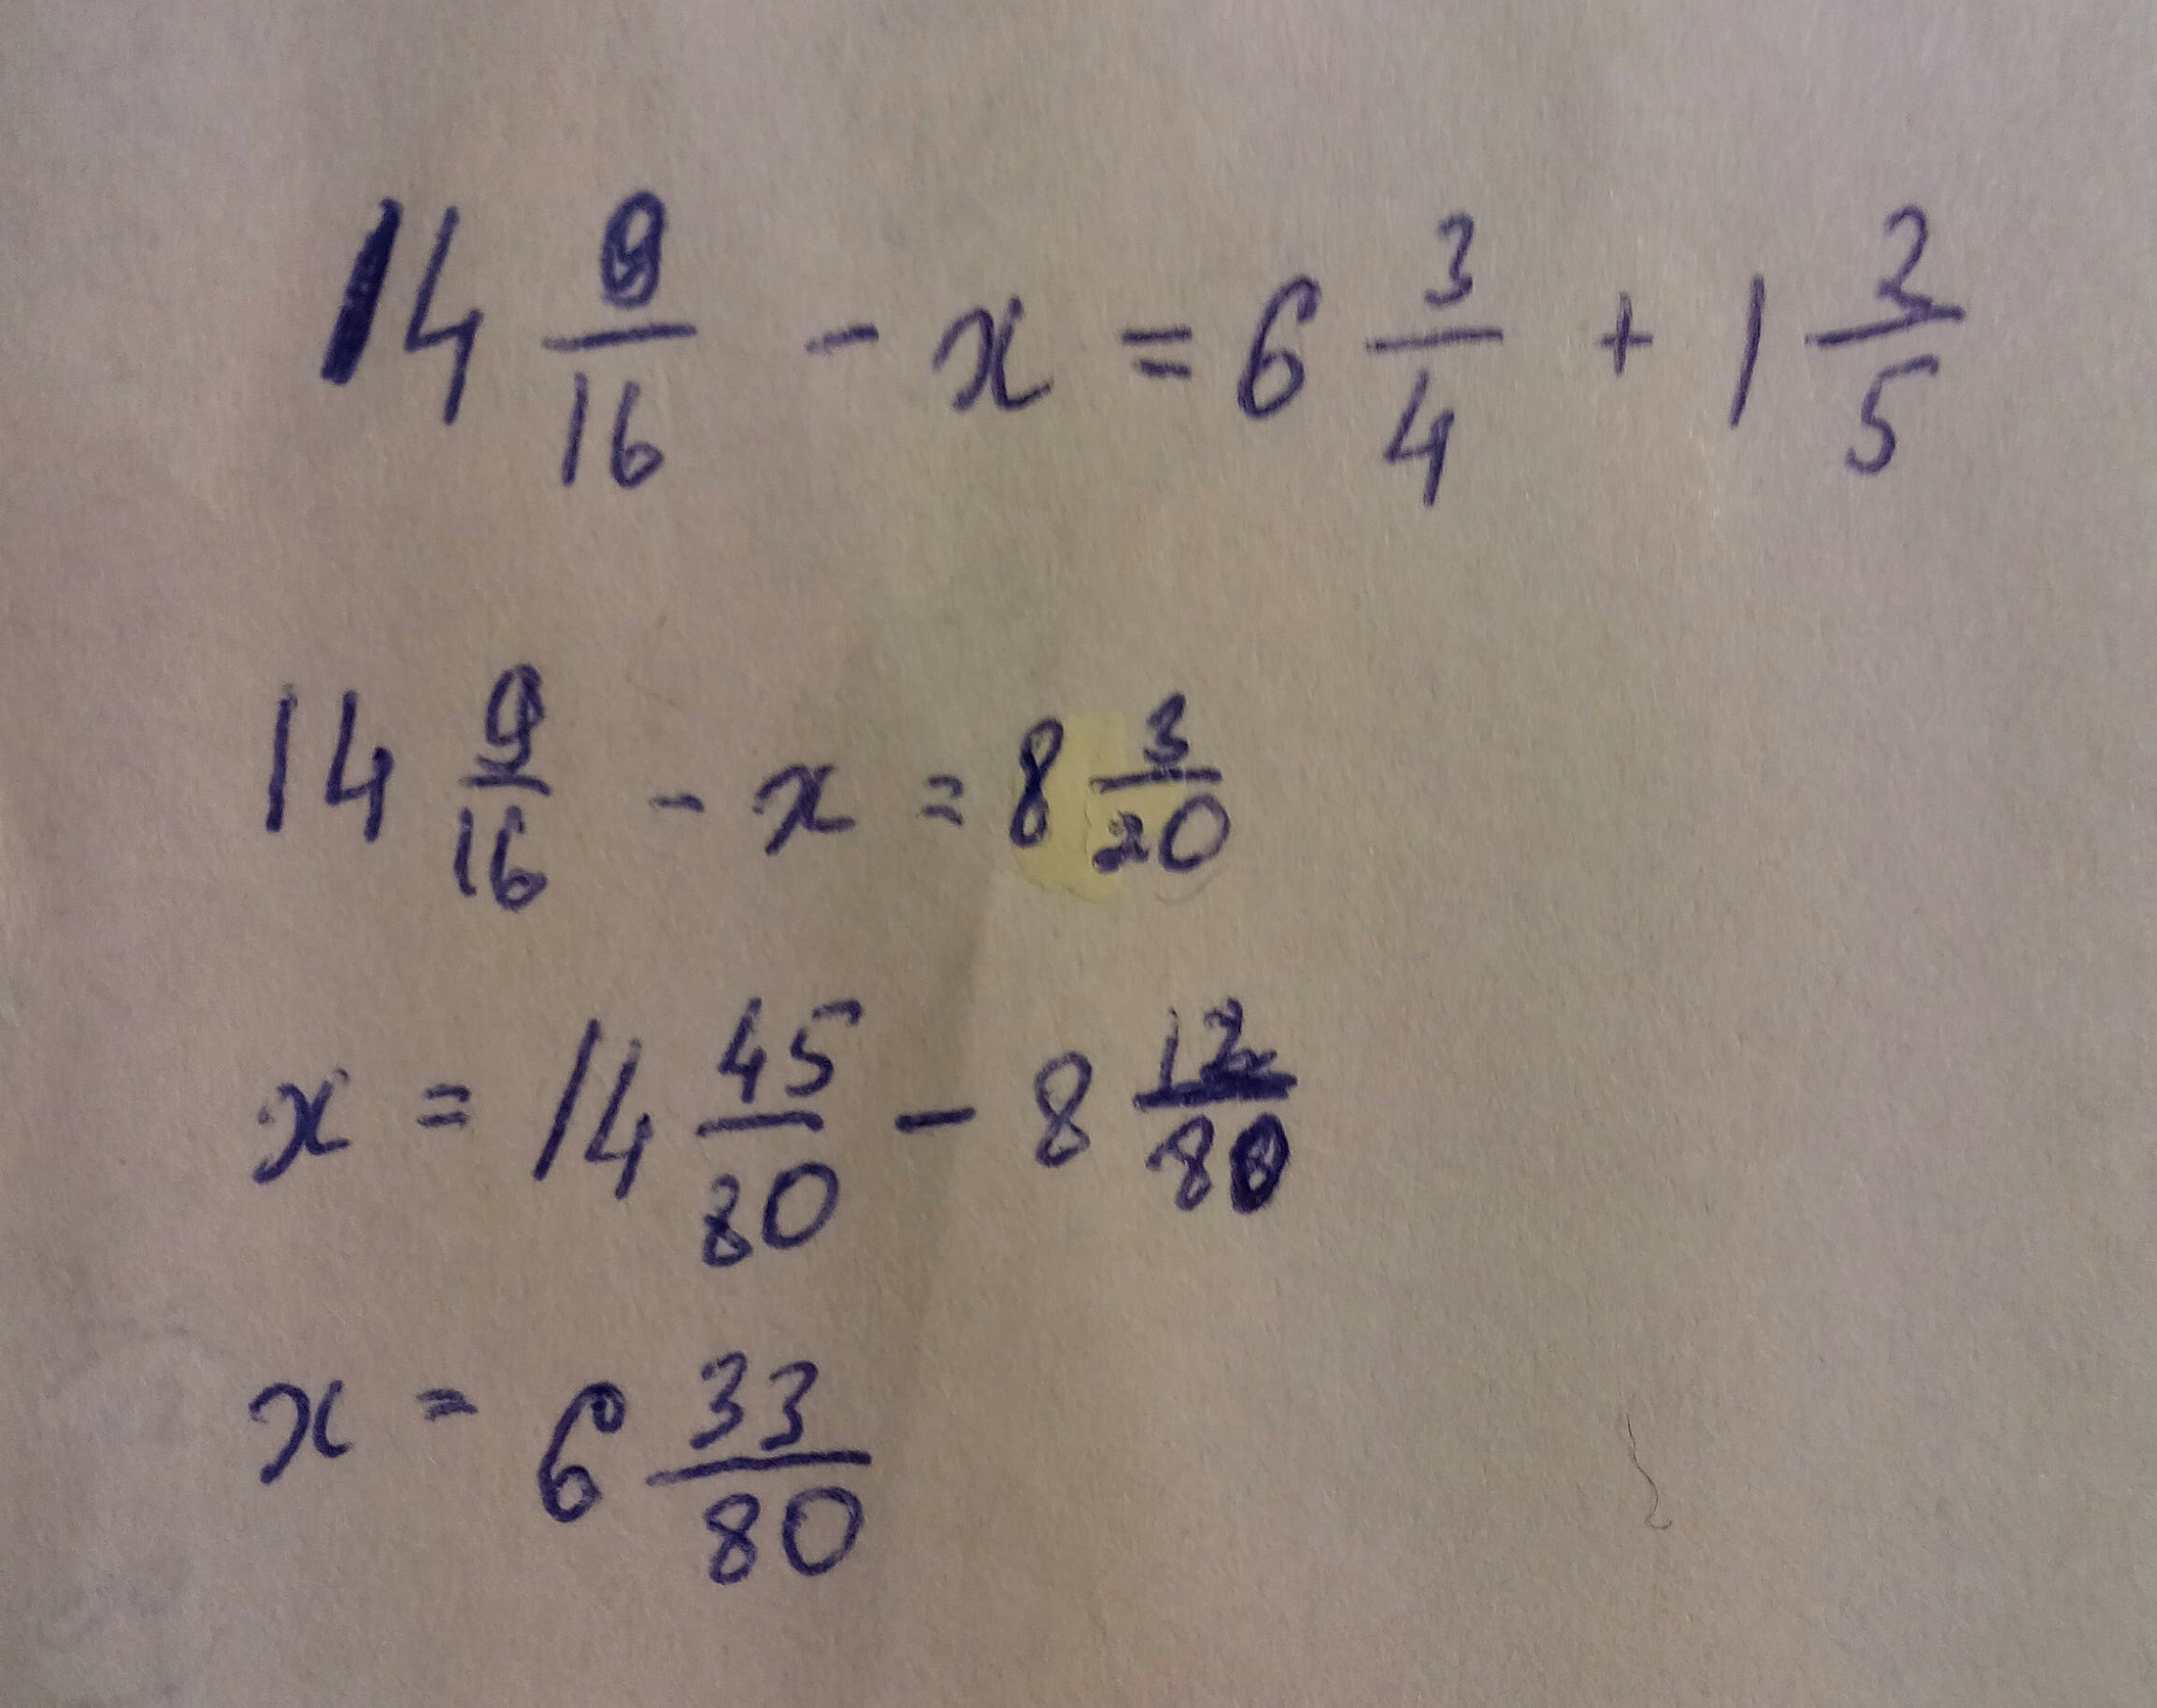 14 9/16 - x = 6 3/4 + 1 2/5
14 9/16 - x = 8 3/20
x = 14 45/80 - 8 12/80
x = 6 33/80